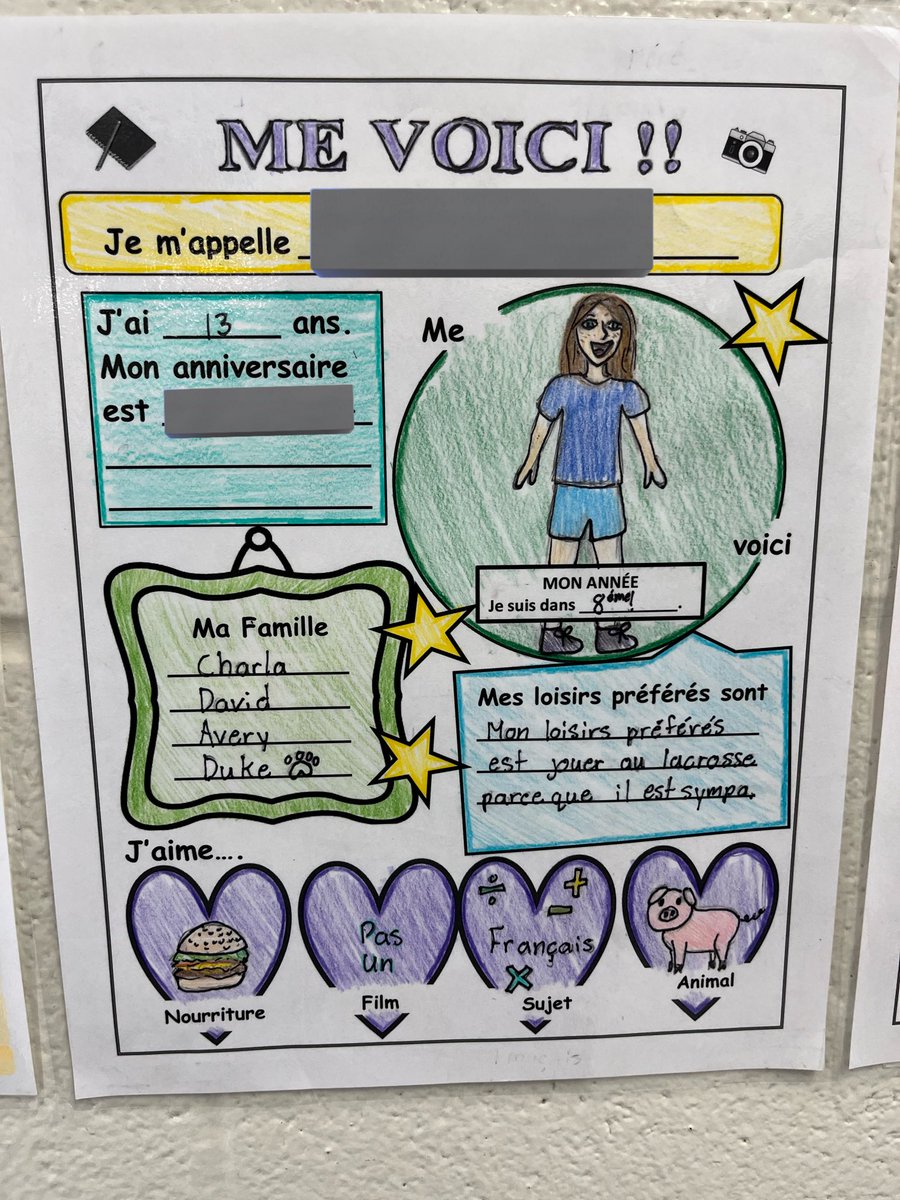 ME VOICI !!
Je m'appelle
J'ai 13 ans.
Mon anniversaire
est
Me
voici
MON ANNÉE
Je suis dans 8éme!.
Ma Famille
Charla
David
Avery
Duke
Mes loisirs préférés sont
Mon loisirs préférés
est jouer au lacrosse
parce que il est sympa.
J'aime....
Pas
un
÷ + -
Français
x
Nourriture
Film
Sujet
Animal